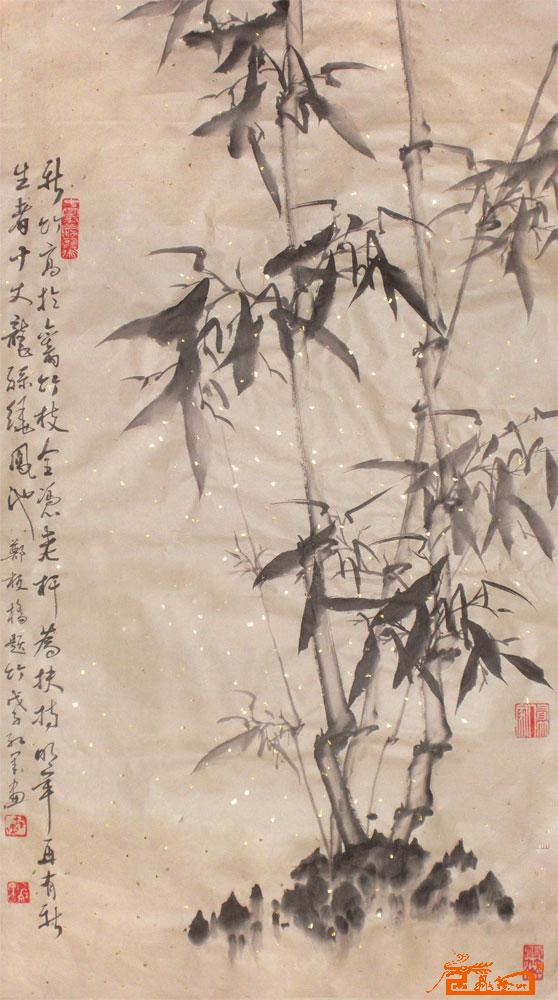 新竹高於舊竹枝全憑老杆為扶持明年再有新
生者十丈龍孫繞鳳池 鄭板橋題竹 戊子